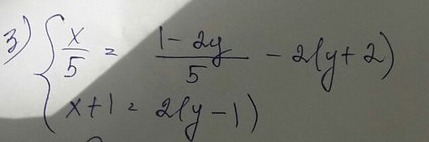 3) { x/5 = (1-2y)/5 - 2(y+2)
x+1 = 2(y-1)